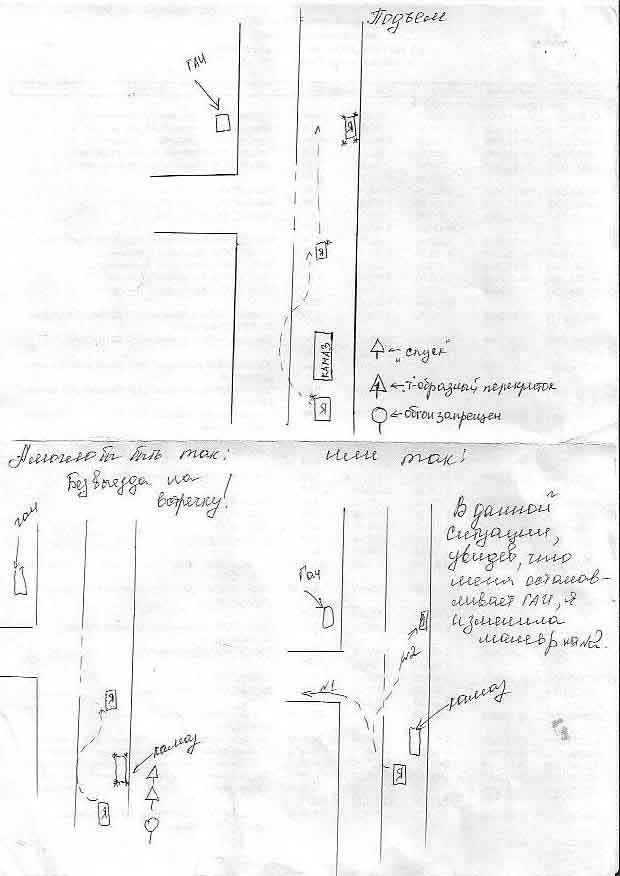 Подъем
ГАИ
Я
Я
КАМАЗ
Я
← "спуск"
← Т-образный перекрёсток
← обгон запрещен
А могло бы быть так:
Без выезда на
встречку!
Или так!
ГАИ
Я
камаз
Я
ГАИ
№1
№2
камаз
Я
В данной
ситуации,
увидев, что
меня останав-
ливает ГАИ, я
изменила
маневр на №2.